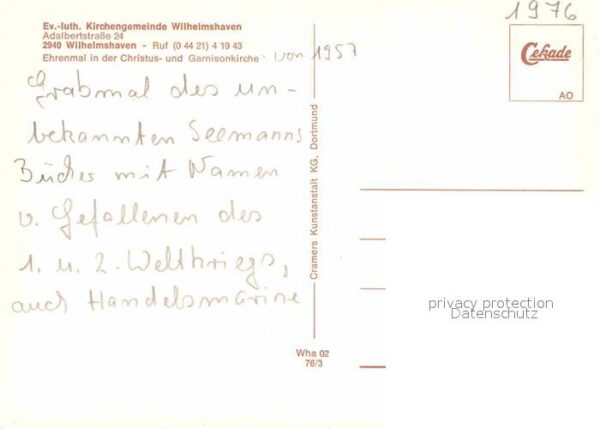 Ev.-luth. Kirchengemeinde Wilhelmshaven
Adalbertstraße 24
2940 Wilhelmshaven - Ruf (0 44 21) 4 19 43
Ehrenmal in der Christus- und Garnisonkirche von 1957
Grabmal des un-
bekannten Seemanns
Bücher mit Namen
v. Gefallenen des
1. u. 2. Weltkriegs,
auch Handelsmarine
Cramers Kunstanstalt KG, Dortmund
Wha 02
76/3
1976
Cekade
AO
privacy protection
Datenschutz